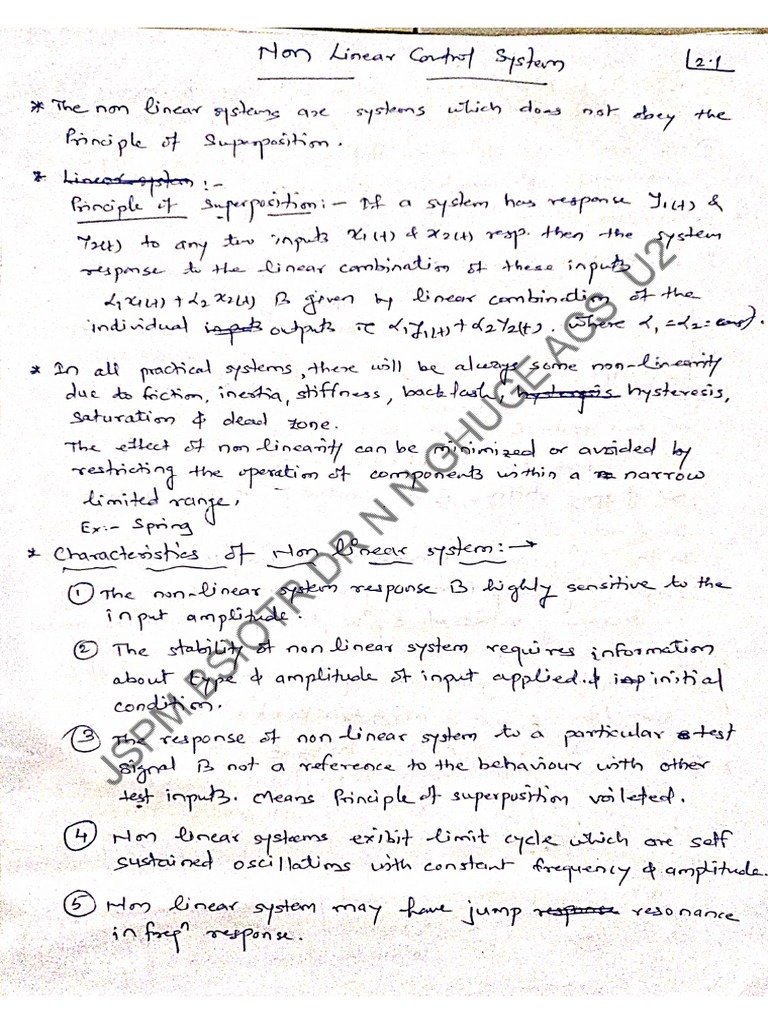 Non Linear Control System
L2.1
* The non linear systems are systems which does not obey the
Principle of Superposition.
* Linear system :-
Principle of Superposition:- If a system has response y1(t) &
y2(t) to any two inputs x1(t) & x2(t) resp. then the system
response to the linear combination of these inputs
α1x1(t) + α2 x2(t) is given by linear combination of the
individual inputs outputs ie α1y1(t) + α2y2(t). where α1 = α2 = const.
* In all practical systems, there will be always some non-linearity
due to friction, inertia, stiffness, backlash, hysteresis hysteresis,
saturation & dead zone.
The effect of non linearity can be minimized or avoided by
restricting the operation of components within a narrow
limited range.
Ex:- Spring
* Characteristics of Non linear system:→
① The non-linear system response is highly sensitive to the
input amplitude.
② The stability of non linear system requires information
about type & amplitude of input applied. & initial
condition.
③ The response of non linear system to a particular test
signal is not a reference to the behaviour with other
test inputs. Means Principle of superposition voileted.
④ Non linear systems exibit limit cycle which are self
sustained oscillations with constant frequency & amplitude.
⑤ Non linear system may have jump response resonance
in freqn response.
JSPM BSIOTR DR N N GHUGE ACS U2